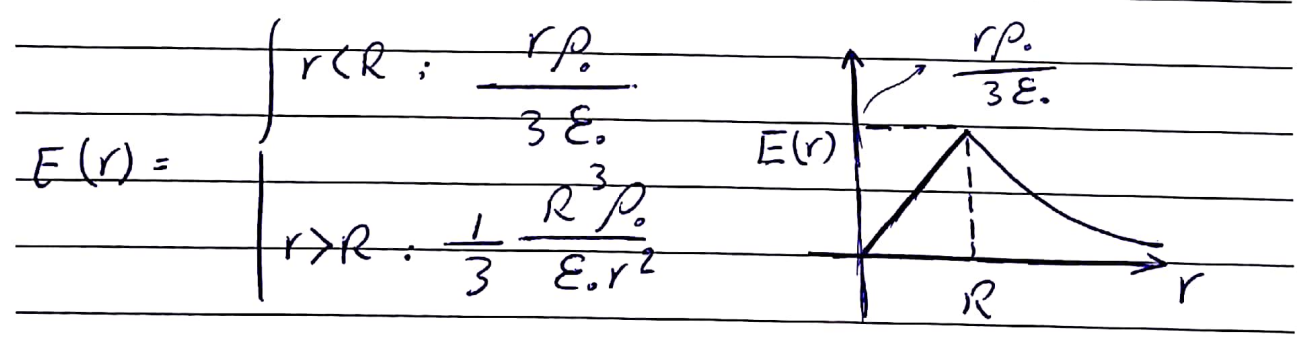 E(r) =
r<R : rρ₀ / 3ε₀
r>R : 1/3 R³ρ₀ / ε₀r²
rρ₀ / 3ε₀
E(r)
R
r